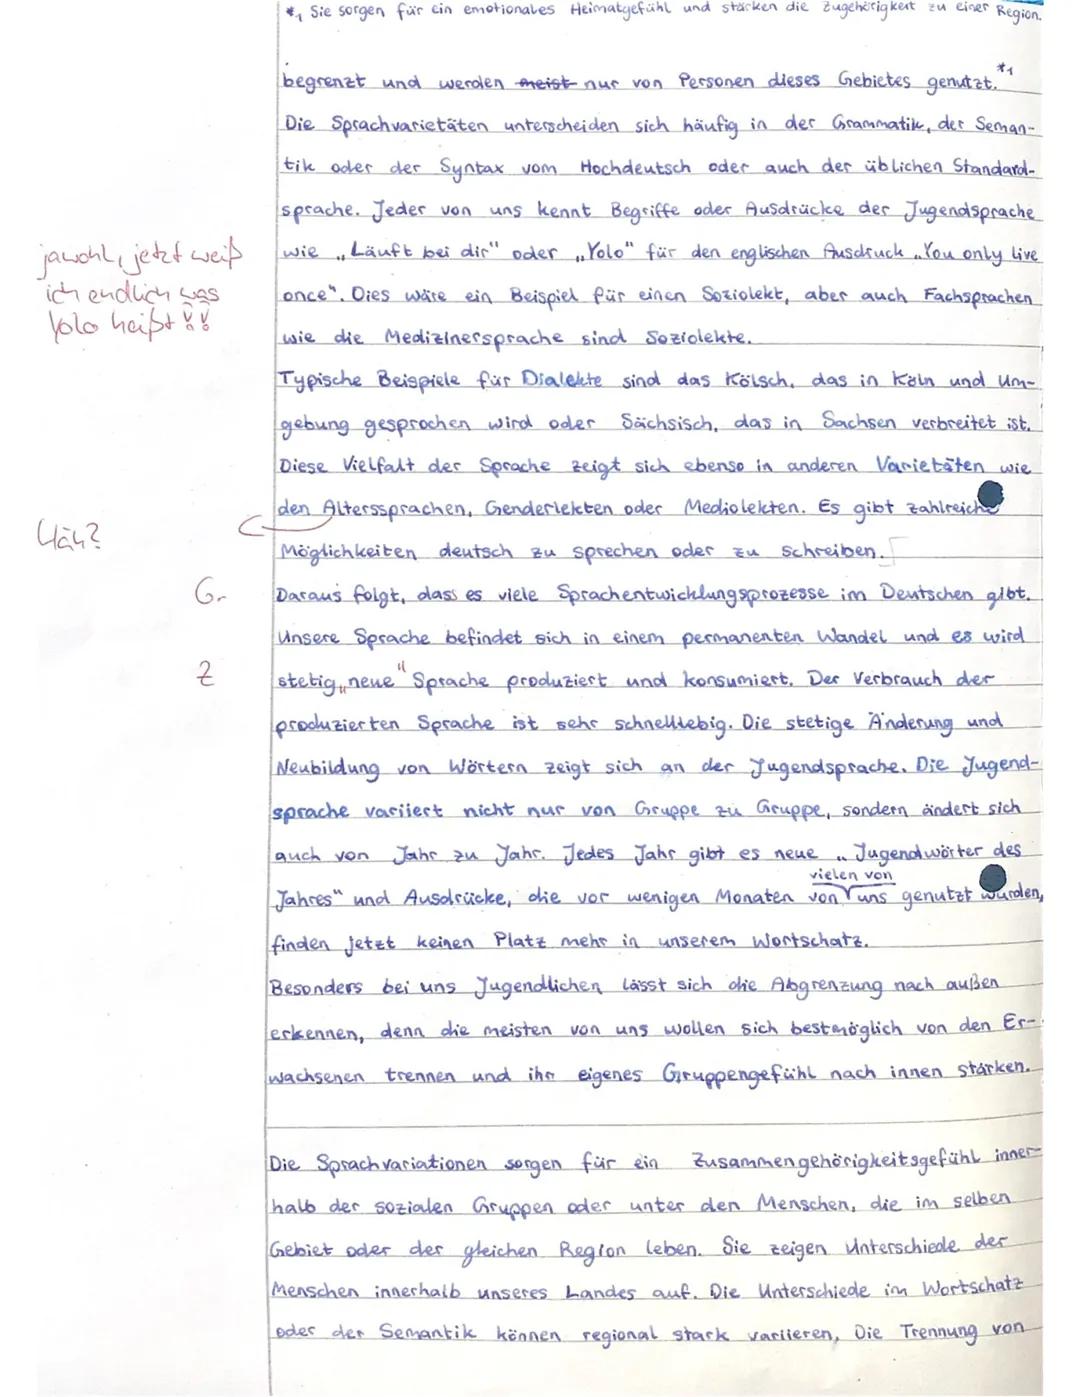 *1 Sie sorgen für ein emotionales Heimatgefühl und stärken die Zugehörigkeit zu einer Region.
begrenzt und werden meist nur von Personen dieses Gebietes genutzt. *1
Die Sprachvarietäten unterscheiden sich häufig in der Grammatik, der Seman-
tik oder der Syntax vom Hochdeutsch oder auch der üblichen Standard-
sprache. Jeder von uns kennt Begriffe oder Ausdrücke der Jugendsprache
wie „Läuft bei dir" oder „Yolo" für den englischen Ausdruck „You only live
once". Dies wäre ein Beispiel für einen Soziolekt, aber auch Fachsprachen
wie die Medizinersprache sind Soziolekte.
jawohl, jetzt weiß
ich endlich was
Yolo heißt !!
Typische Beispiele für Dialekte sind das Kölsch, das in Köln und Um-
gebung gesprochen wird oder Sächsisch, das in Sachsen verbreitet ist.
Diese Vielfalt der Sprache zeigt sich ebenso in anderen Varietäten wie
den Alterssprachen, Genderlekten oder Mediolekten. Es gibt zahlreiche
Häh?
Möglichkeiten deutsch zu sprechen oder zu schreiben.
Gr
Daraus folgt, dass es viele Sprachentwicklungsprozesse im Deutschen gibt.
Unsere Sprache befindet sich in einem permanenten Wandel und es wird
Z
stetig „neue" Sprache produziert und konsumiert. Der Verbrauch der
produzierten Sprache ist sehr schnelllebig. Die stetige Änderung und
Neubildung von Wörtern zeigt sich an der Jugendsprache. Die Jugend-
sprache variiert nicht nur von Gruppe zu Gruppe, sondern ändert sich
auch von Jahr zu Jahr. Jedes Jahr gibt es neue „Jugendwörter des
vielen von
Jahres" und Ausdrücke, die vor wenigen Monaten von uns genutzt wurden,
finden jetzt keinen Platz mehr in unserem Wortschatz.
Besonders bei uns Jugendlichen lässt sich die Abgrenzung nach außen
erkennen, denn die meisten von uns wollen sich bestmöglich von den Er-
wachsenen trennen und ihr eigenes Gruppengefühl nach innen stärken.
Die Sprachvariationen sorgen für ein Zusammengehörigkeitsgefühl inner-
halb der sozialen Gruppen oder unter den Menschen, die im selben
Gebiet oder der gleichen Region leben. Sie zeigen Unterschiede der
Menschen innerhalb unseres Landes auf. Die Unterschiede im Wortschatz
oder der Semantik können regional stark variieren. Die Trennung von